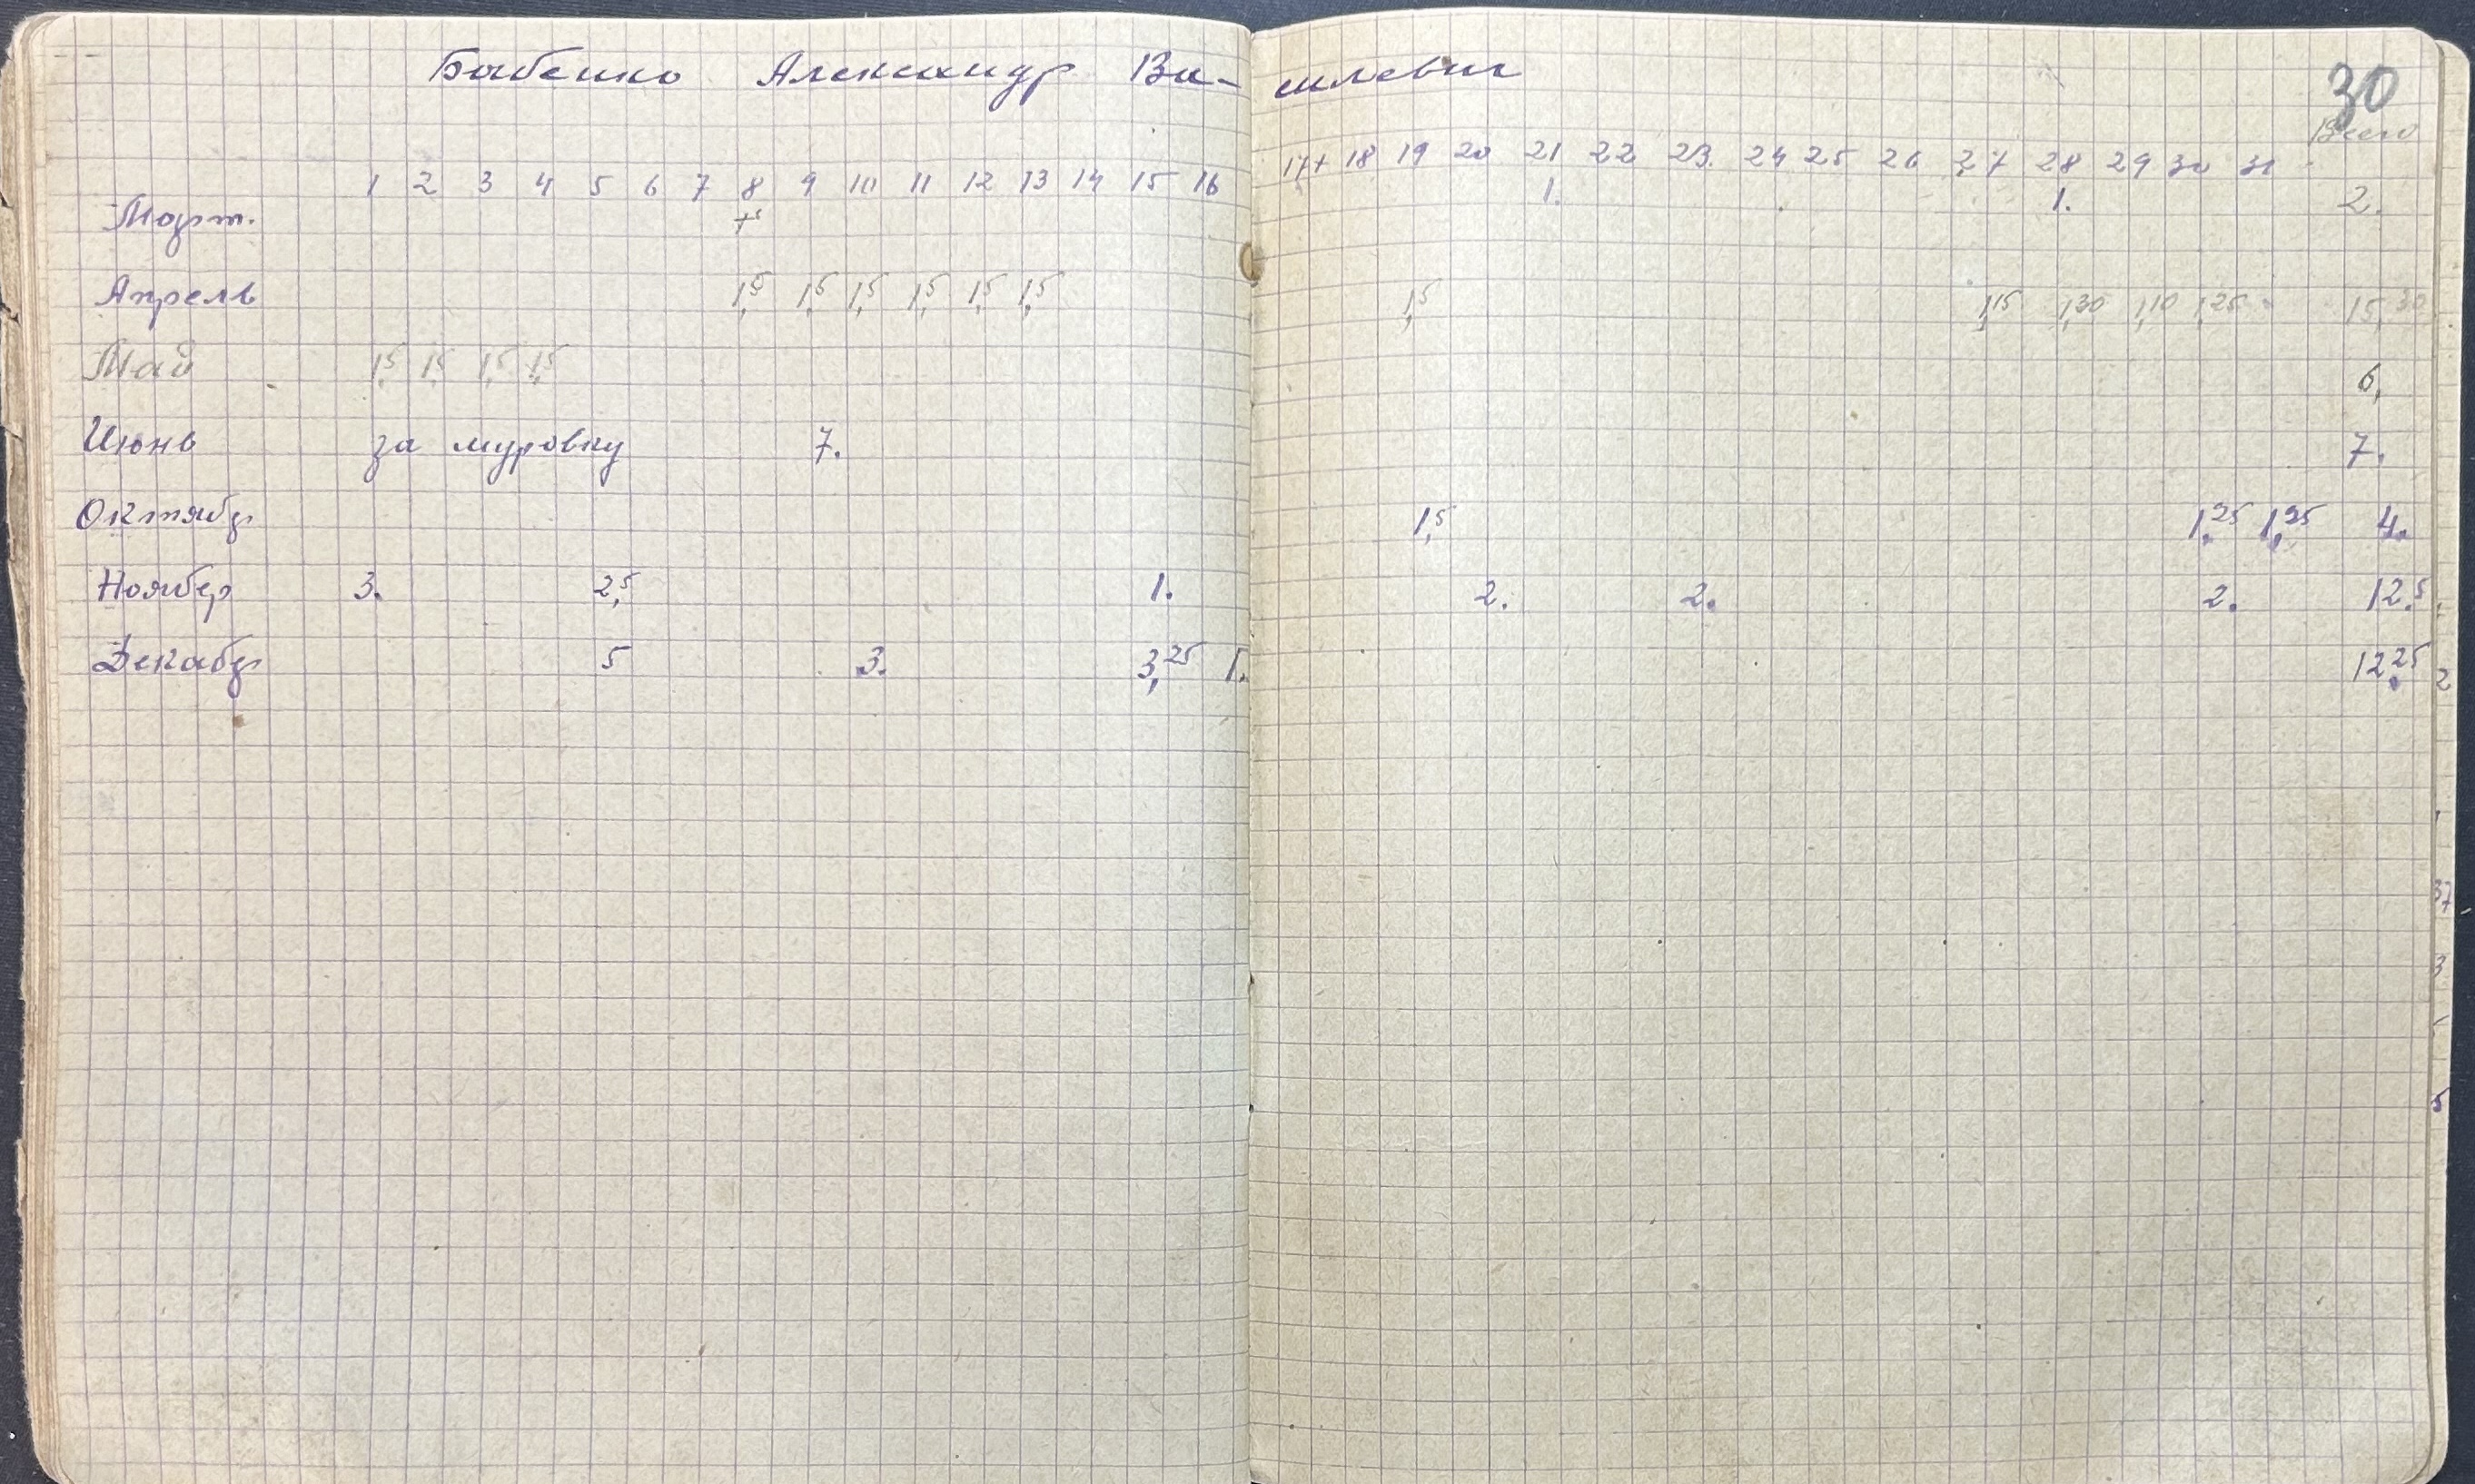 Бабенко Александр Ва- силевич
30
Всего
1 2 3 4 5 6 7 8 9 10 11 12 13 14 15 16 17+ 18 19 20 21 22 23. 24 25 26 27 28 29 30 31
Март. + 1. 1. 2.
Апрель 1,5 1,5 1,5 1,5 1,5 1,5 1,5 1,15 1,30 1,10 1,25 15,30
Май 1,5 1,5 1,5 1,5 6,
Июнь за муровку 7. 7.
Октябр 1,5 1,25 1,25 4.
Ноябер 3. 2,5 1. 2. 2. 2. 12.5
Декабр 5 3. 3,25 1. 12.25
2
37
3
5